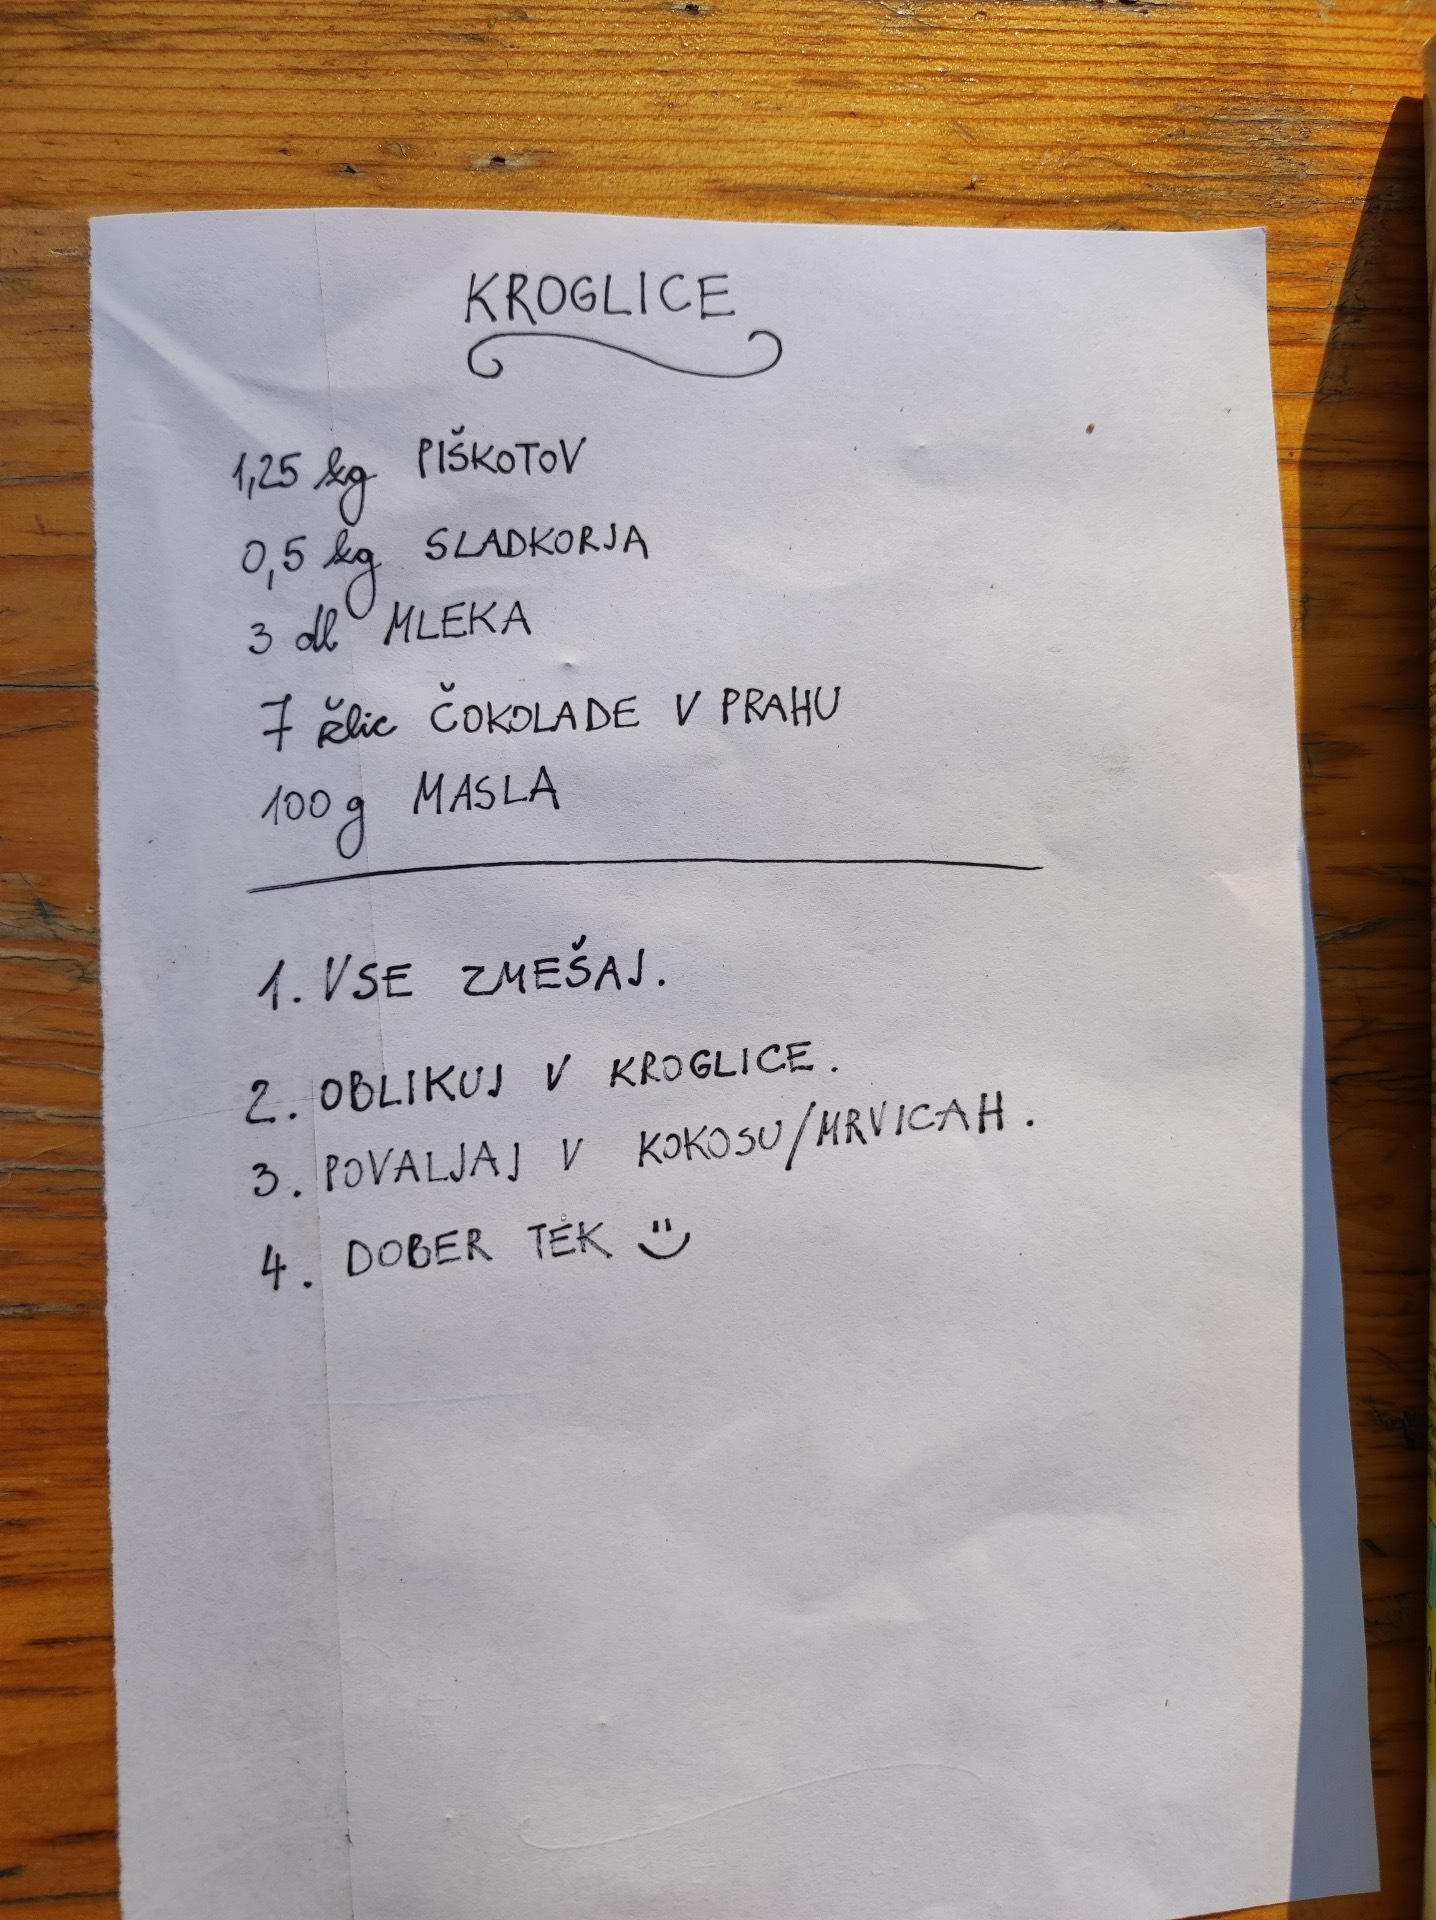 KROGLICE
1,25 kg PIŠKOTOV
0,5 kg SLADKORJA
3 dl MLEKA
7 žlic ČOKOLADE V PRAHU
100 g MASLA
1. VSE ZMEŠAJ.
2. OBLIKUJ V KROGLICE.
3. POVALJAJ V KOKOSU/MRVICAH.
4. DOBER TEK :)